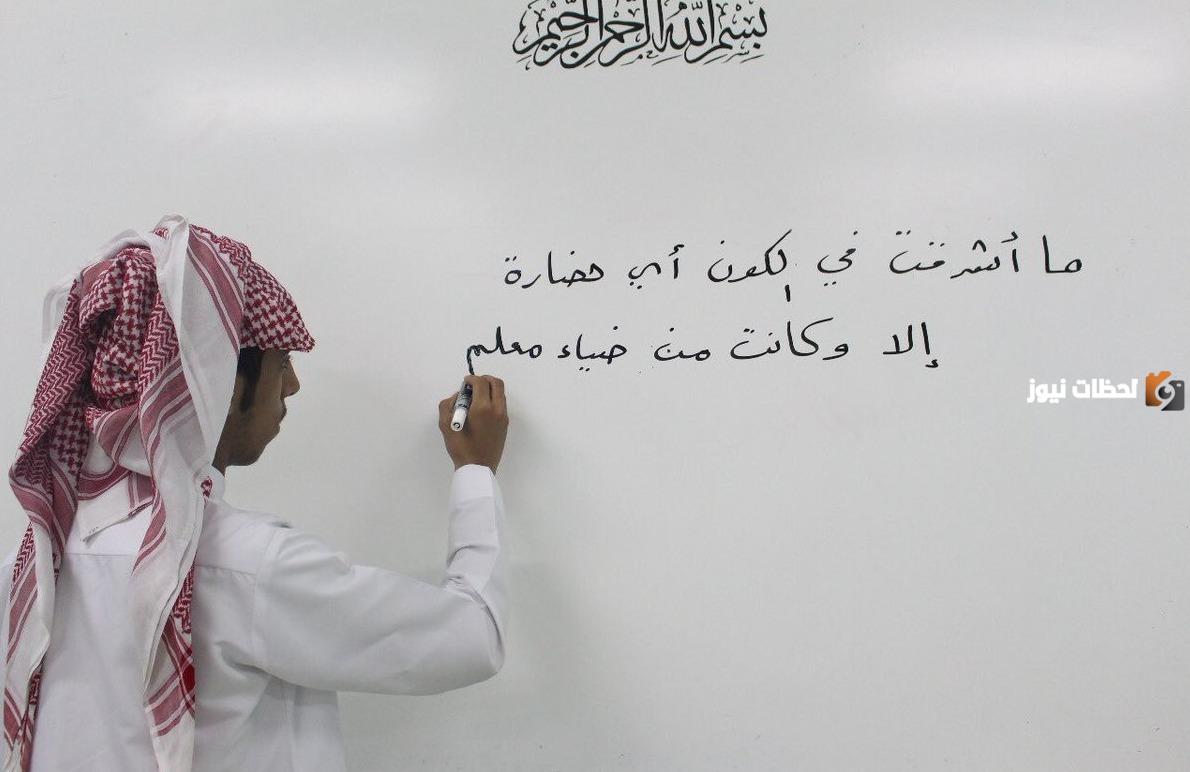 بِسْمِ اللَّهِ الرَّحْمَٰنِ الرَّحِيمِ
ما أشرقت في الكون أي حضارة
إلا وكانت من ضياء معلم
لحظات نيوز